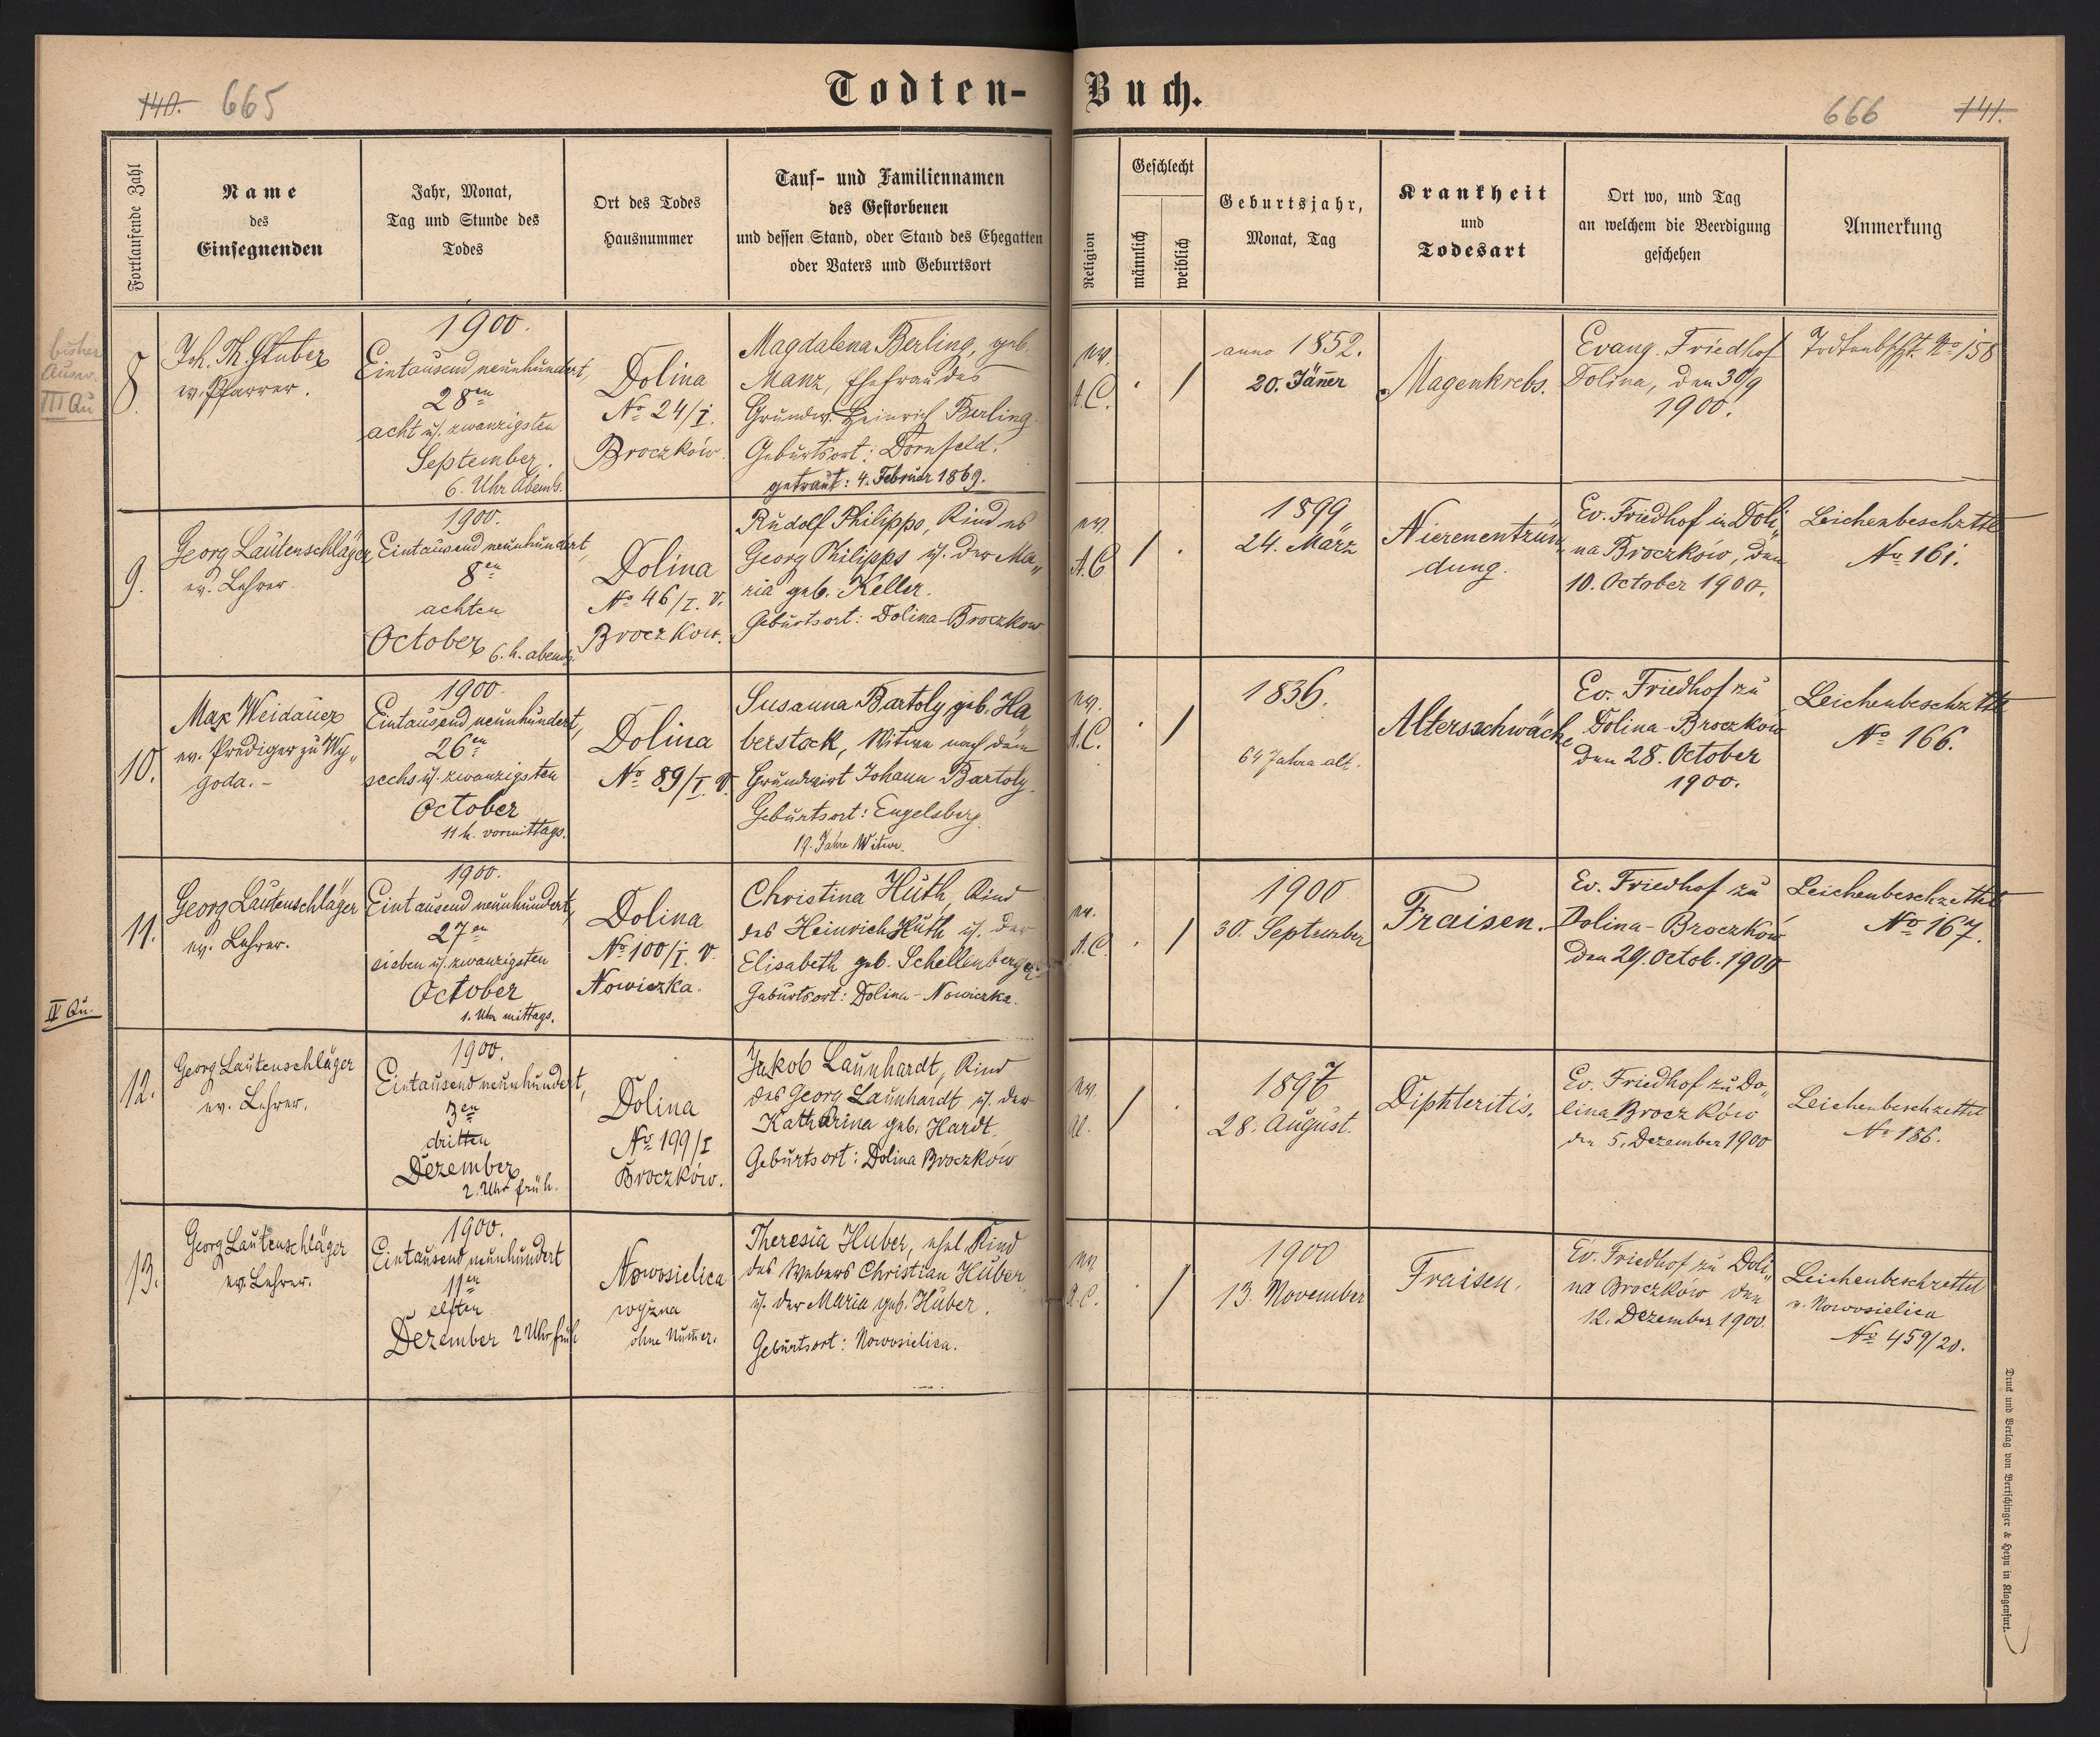 140. 665
Todten-Buch.
666 141.
Fortlaufende Zahl
Name
des
Einsegnenden
Jahr, Monat,
Tag und Stunde des
Todes
Ort des Todes
Hausnummer
Tauf- und Familiennamen
des Gestorbenen
und dessen Stand, oder Stand des Ehegatten
oder Vaters und Geburtsort
Religion
Geschlecht
männlich
weiblich
Geburtsjahr,
Monat, Tag
Krankheit
und
Todesart
Ort wo, und Tag
an welchem die Beerdigung
geschehen
Anmerkung
bisher
Ausw.
III Qu
8.
Joh. Th. Stuber
ev. Pfarrer.
1900.
Eintausend neunhundert,
28en
acht u. zwanzigsten
September.
6. Uhr Abends.
Dolina
No 24/I.
Broczków.
Magdalena Berling, geb.
Manz, Ehefrau des
Grundw. Heinrich Berling.
Geburtsort: Dornfeld.
getraut: 4. Februar 1869.
ev.
A.C.
. /
anno 1852.
20. Jäner
Magenkrebs.
Evang. Friedhof
Dolina, den 30/9
1900.
No 158
9.
Georg Lautenschläger
ev. Lehrer
1900.
Eintausend neunhundert,
8en
achten
October 6. h. abends.
Dolina
No 46/I. V.
Broczkow.
Rudolf Philipps, Kind des
Georg Philipps u. der Ma„
ria geb. Keller.
Geburtsort: Dolina-Broczkow
ev.
A.C
/ .
1899
24. März
Nierenentzün„
dung.
Ev. Friedhof in Doli„
na Broczków, den
10. October 1900.
Leichenbeschzttl
No 161.
10.
Max Weidauer
ev. Prediger zu Wy„
goda. -
1900.
Eintausend neunhundert,
26en
sechs u. zwanzigsten
October
11 h. vormittags.
Dolina
No 89/I. V.
Susanna Bartoly geb. Ha
berstock, Witwe nach dem
Grundwirt Johann Bartoly.
Geburtsort: Engelsberg.
19. Jahre Witwe.
ev.
A.C.
. /
1836.
64 Jahre alt.
Altersschwäche
Ev. Friedhof zu
Dolina-Broczków
den 28. October
1900.
Leichenbeschzttl
No 166.
11.
Georg Lautenschläger
ev. Lehrer.
1900.
Eintausend neunhundert,
27en
sieben u. zwanzigsten
October
1. Uhr mittags.
Dolina
No 100/I. V.
Nowiczka.
Christina Huth, Kind
des Heinrich Huth u. der
Elisabeth geb. Schellenberger.
Geburtsort: Dolina-Nowiczka.
ev.
A.C.
. /
1900
30. September
Fraisen.
Ev. Friedhof zu
Dolina-Broczków
den 29. Octob. 1900
Leichenbeschzettel
No 167.
IV Qu.
12.
Georg Lautenschläger
ev. Lehrer.
1900.
Eintausend neunhundert,
3en
dritten
Dezember
2. Uhr früh.
Dolina
No 199/I
Broczków.
Jakob Launhardt, Kind
des Georg Launhardt u. der
Katharina geb. Hardt.
Geburtsort: Dolina Broczków
ev.
/ .
28. August.
Diphteritis.
Ev. Friedhof zu Do„
lina Broczków
den 5. Dezember 1900
Leichenbeschzettel
No 186.
13.
Georg Lautenschläger
ev. Lehrer.
1900.
Eintausend neunhundert
11en
elften
Dezember 2 Uhr früh
Nowosielica
wyżna
ohne Numer.
Theresia Huber, ehel. Kind
des Webers Christian Huber
u. der Maria geb. Huber.
Geburtsort: Nowosielica.
ev.
A.C.
. /
1900
13. November
Fraisen.
Ev. Friedhof zu Doli„
na Broczków den
12. Dezember 1900.
Leichenbeschzettel
v. Nowosielica
No 459/20.
Druck und Verlag von Bertschinger & Heyn in Klagenfurt.